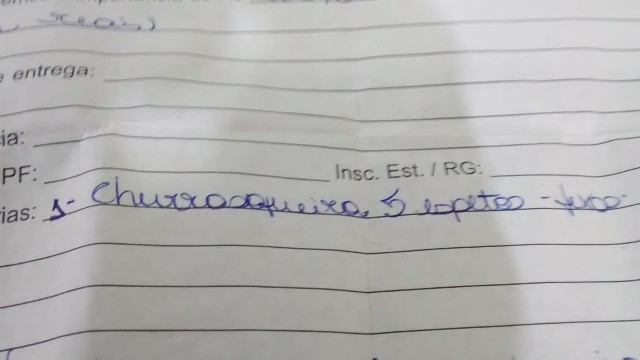 reais)
entrega:
ia:
PF: Insc. Est. / RG:
ias: 1- Churrasqueira, 5 espetos -